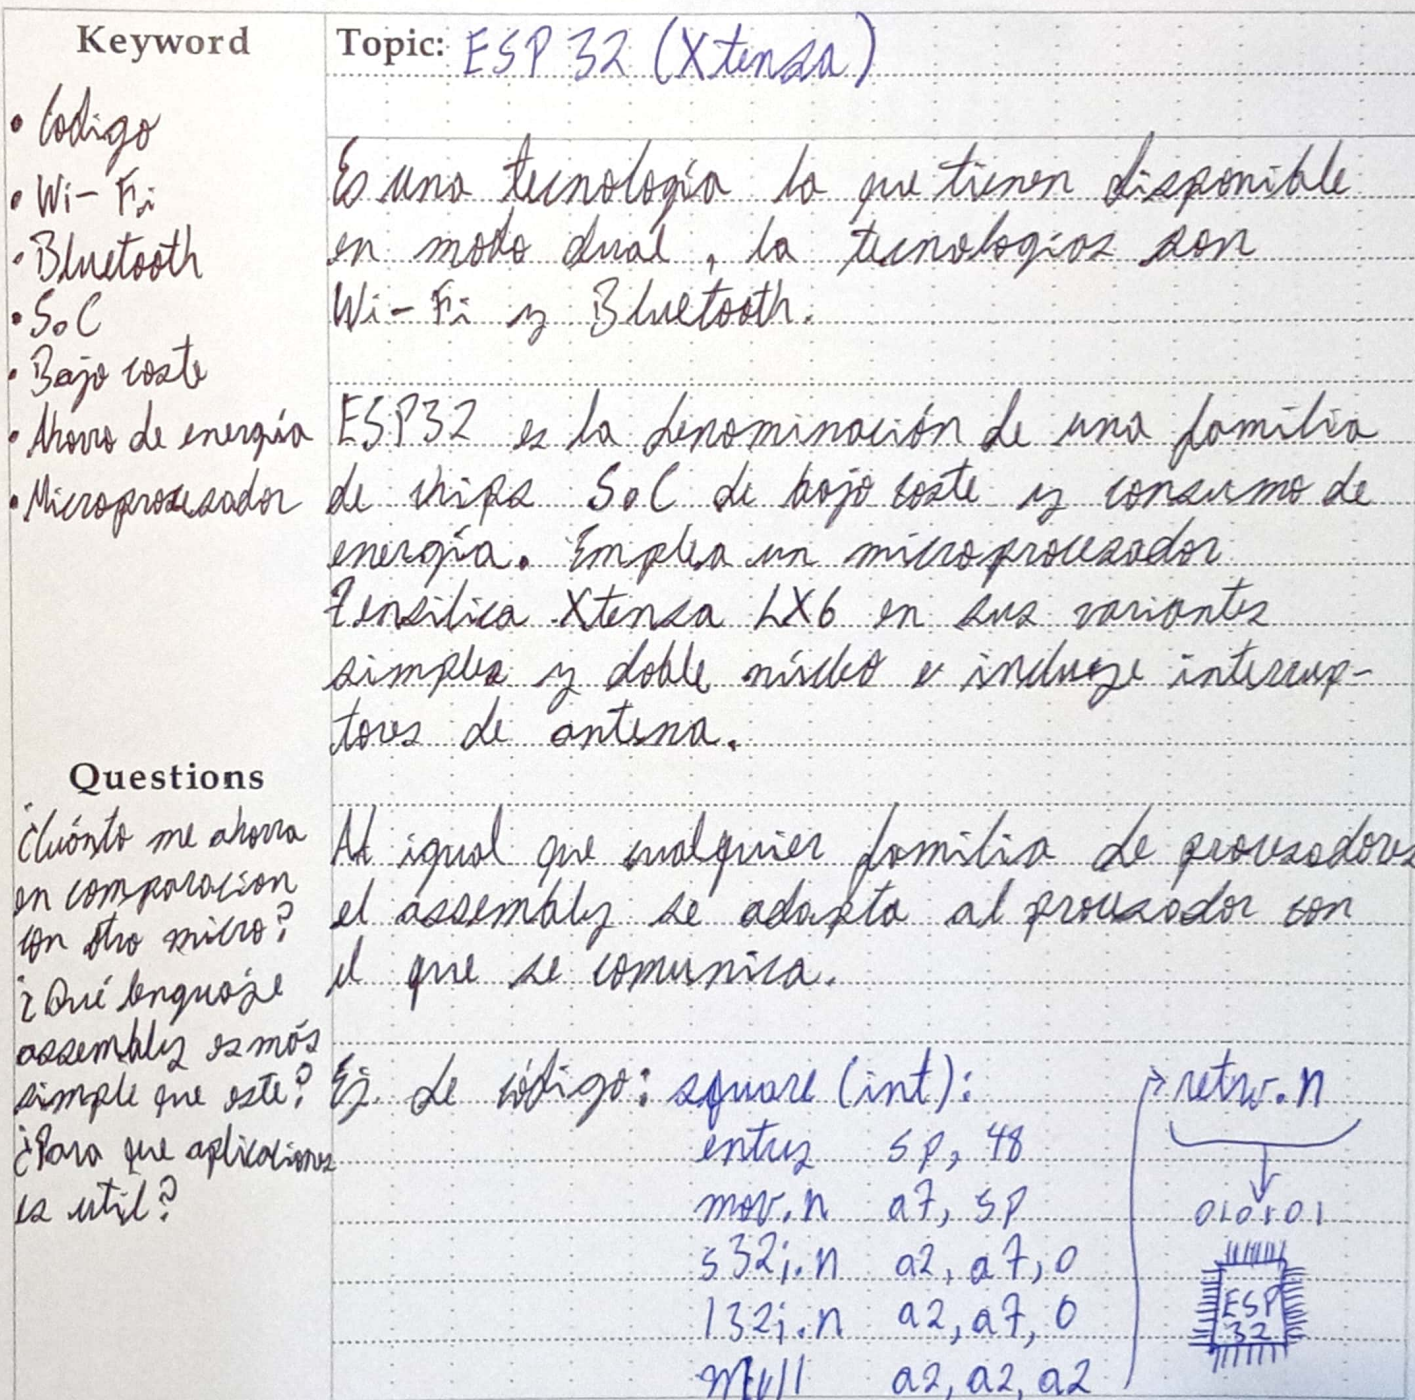 Keyword
• Codigo
• Wi-Fi
• Bluetooth
• SoC
• Bajo coste
• Ahorro de energía
• Microprosesador
Questions
¿Cuánto me ahorra
en comparacion
con otro micro?
¿Qué lenguaje
assembly es más
simple que este?
¿Para que aplicaciones
es util?
Topic: ESP32 (Xtensa)
Es una tecnología la que tienen disponible
en modo dual, la tecnologías son
Wi-Fi y Bluetooth.
ESP32 es la denominación de una familia
de chips SoC de bajo coste y consumo de
energía. Emplea un microprocesador
Tensilica Xtensa LX6 en sus variantes
simples y doble núcleo e incluye interrup-
tores de antena.
Al igual que cualquier familia de procesadores
el assembly se adapta al procesador con
el que se comunica.
Ej. de código: square (int):
entry sp, 48
mov.n a7, sp
s32i.n a2, a7, 0
l32i.n a2, a7, 0
mull a2, a2, a2
retw.n
010101
ESP
32